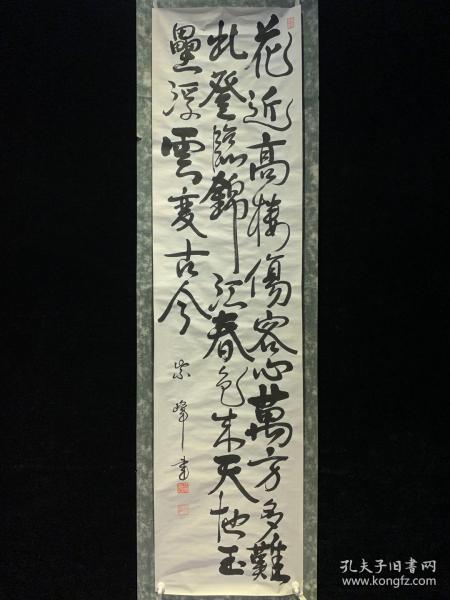 花近高樓傷客心萬方多難
此登臨錦江春色来天地玉
壘浮雲変古今
峰書
孔夫子旧书网
www.kongfz.com